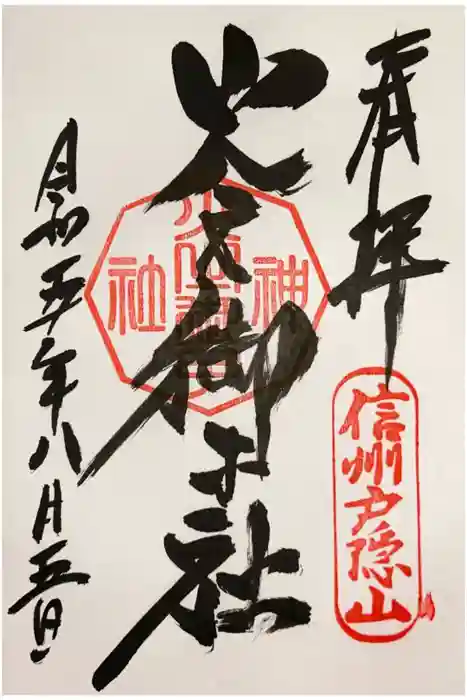 奉拝
信州戸隠山
火之御子社
神
社
令和五年八月五日